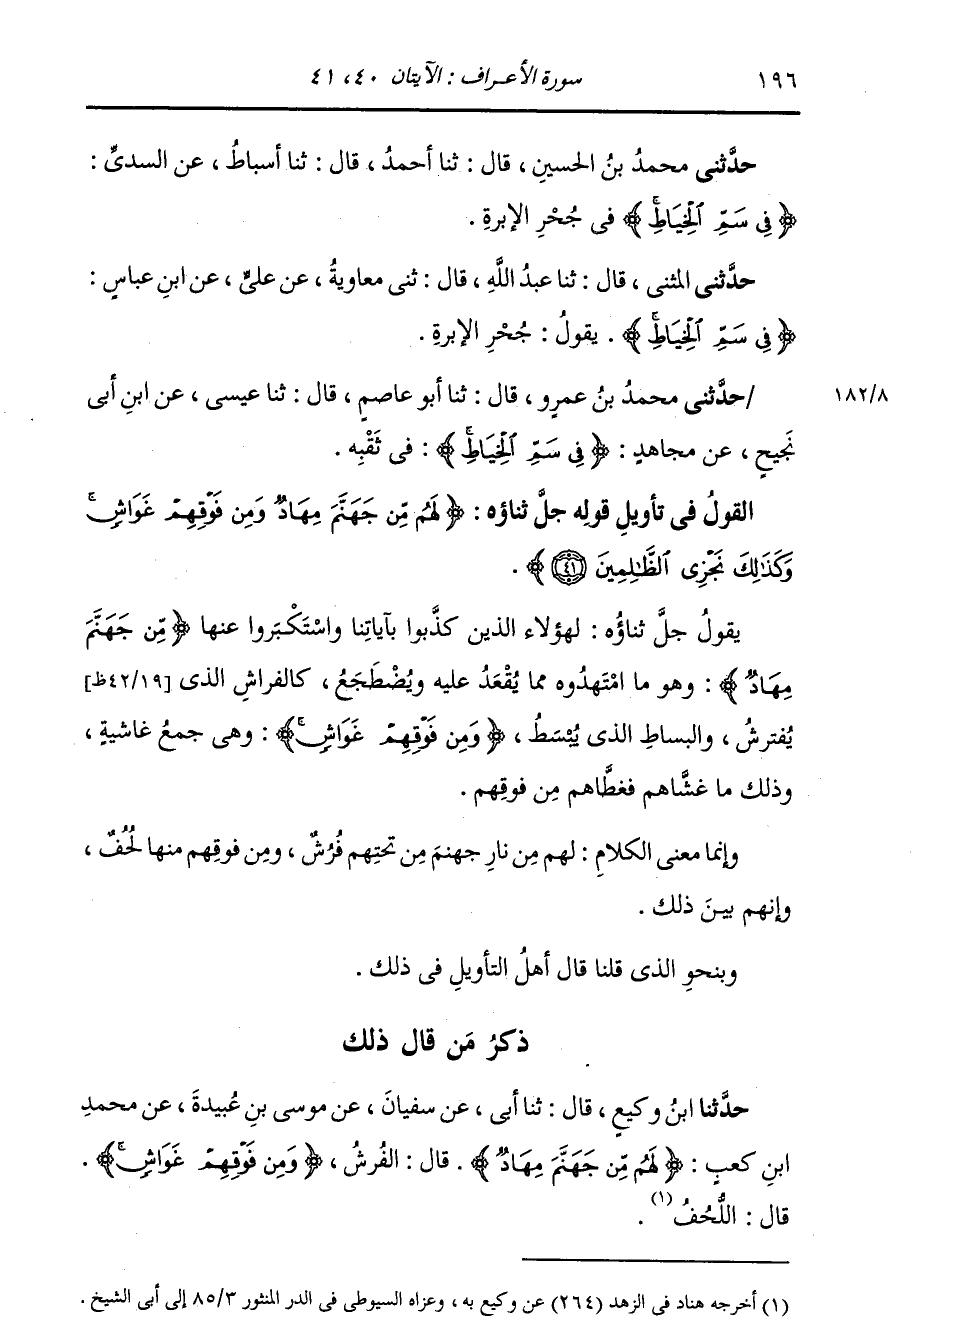 ١٩٦ سورة الأعراف : الآيتان ٤٠ ، ٤١
حدَّثنى محمدُ بنُ الحسينِ ، قال : ثنا أحمدُ ، قال : ثنا أسباطُ ، عن السدىِّ :
﴿ فِي سَمِّ ٱلْخِيَاطِۚ ﴾ فى جُحْرِ الإبرةِ .
حدَّثنى المثنى ، قال : ثنا عبدُ اللَّهِ ، قال : ثنى معاويةُ ، عن علىٍّ ، عن ابنِ عباسٍ :
﴿ فِي سَمِّ ٱلْخِيَاطِۚ ﴾ . يقولُ : جُحْرِ الإبرةِ .
١٨٢/٨ /حدَّثنى محمدُ بنُ عمرٍو ، قال : ثنا أبو عاصمٍ ، قال : ثنا عيسى ، عن ابنِ أبى
نَجيحٍ ، عن مجاهدٍ : ﴿ فِي سَمِّ ٱلْخِيَاطِۚ ﴾ : فى ثَقْبِه .
القولُ فى تأويلِ قولِه جلَّ ثناؤه : ﴿ لَهُم مِّن جَهَنَّمَ مِهَادٌ وَمِن فَوْقِهِمْ غَوَاشٍۚ
وَكَذَٰلِكَ نَجْزِى ٱلظَّٰلِمِينَ ٤١ ﴾ .
يقولُ جلَّ ثناؤُه : لهؤلاء الذين كذَّبوا بآياتِنا واسْتَكْبَروا عنها ﴿ مِّن جَهَنَّمَ
مِهَادٌ ﴾ : وهو ما امْتَهدُوه مما يُقْعَدُ عليه ويُضْطَجَعُ ، كالفراشِ الذى [٤٢/١٩ظ]
يُفترشُ ، والبساطِ الذى يُبْسَطُ ، ﴿ وَمِن فَوْقِهِمْ غَوَاشٍۚ ﴾ : وهى جمعُ غاشيةٍ ،
وذلك ما غشَّاهم فغطَّاهم مِن فوقِهم .
وإنما معنى الكلامِ : لهم مِن نارِ جهنمَ مِن تحتِهم فُرُشٌ ، ومِن فوقِهم منها لُحُفٌ ،
وإنهم بينَ ذلك .
وبنحوِ الذى قلنا قال أهلُ التأويلِ فى ذلك .
ذكرُ مَن قال ذلك
حدَّثنا ابنُ وكيعٍ ، قال : ثنا أبى ، عن سفيانَ ، عن موسى بنِ عُبيدةَ ، عن محمدِ
ابنِ كعبٍ : ﴿ لَهُم مِّن جَهَنَّمَ مِهَادٌ ﴾ . قال : الفُرشُ ، ﴿ وَمِن فَوْقِهِمْ غَوَاشٍۚ ﴾ .
قال : اللُّحُفُ (١) .
(١) أخرجه هناد فى الزهد (٢٦٤) عن وكيع به ، وعزاه السيوطى فى الدر المنثور ٨٥/٣ إلى أبى الشيخ .